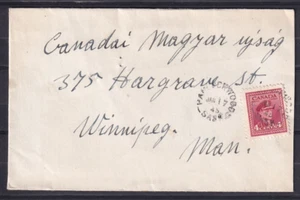 Canadai Magyar ujság
375 Hargrave st.
Winnipeg.
Man.
JAN 17
SASK
CANADA
4